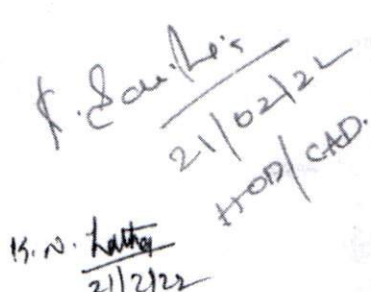 21/02/22
HOD/CAD.
K. N. Latha
21/2/22